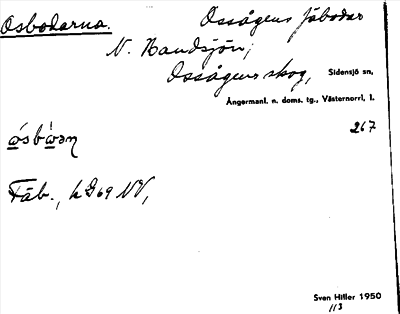 Osbodarna. Ossågens fäbodar
N. Nandsjön,
Ossågens skog, Sidensjö sn,
Ångermanl. n. doms. tg., Västernorrl. l.
267
Fäb., k G69 NV,
Sven Hitler 1950
11/3